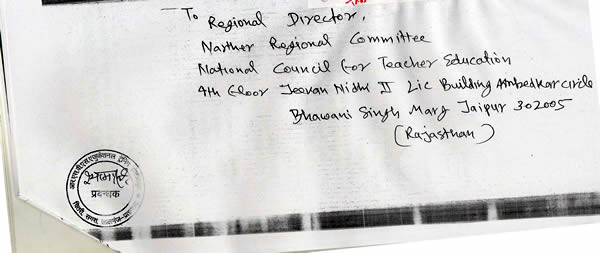 To Regional Director,
Narther Regional Committee
National Council for Teacher Education
4th Gloor Jeevan Nidhi II Lic Building Ambedkar circle
Bhawani Singh Marg Jaipur 302005
(Rajasthan)
प्रबन्धक